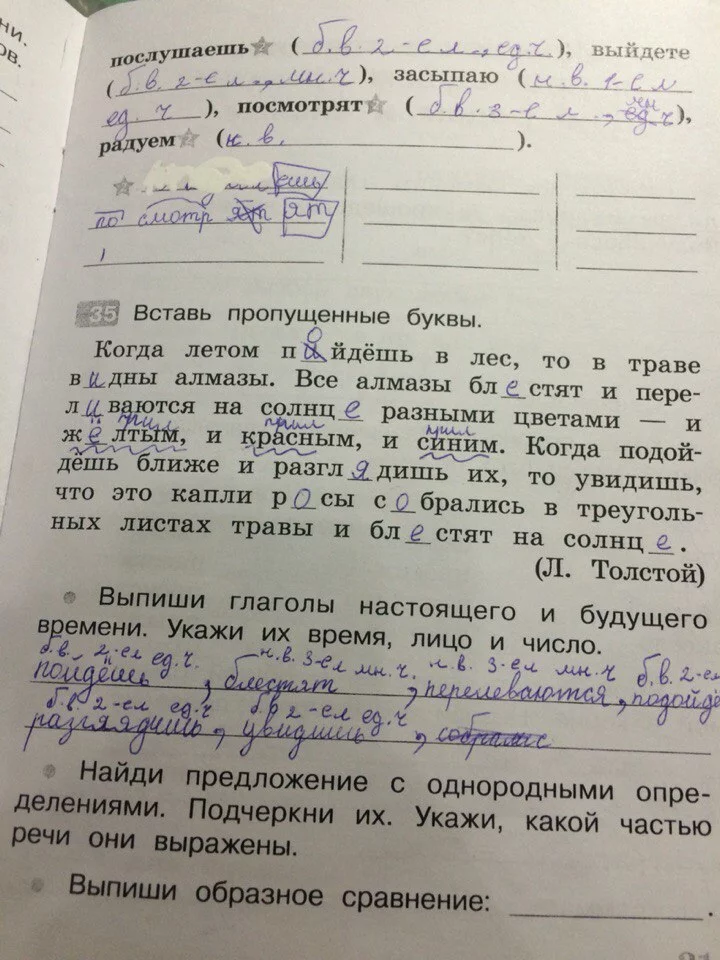 ни.
ов.
послушаешь ( б.в. 2-е л., ед.ч. ), выйдете
( б.в. 2-е л., мн.ч ), засыпаю ( н.в. 1-е л
ед. ч ), посмотрят ( б.в. 3-е л., мн ед ч ),
радуем ( н.в. ).
ешь
по смотр ят ят
35 Вставь пропущенные буквы.
Когда летом пойдёшь в лес, то в траве
видны алмазы. Все алмазы блестят и пере-
прил прил прил
ливаются на солнце разными цветами — и
жёлтым, и красным, и синим. Когда подой-
дёшь ближе и разглядишь их, то увидишь,
что это капли росы собрались в треуголь-
ных листах травы и блестят на солнце.
(Л. Толстой)
Выпиши глаголы настоящего и будущего
времени. Укажи их время, лицо и число.
б.в. 2-ел ед.ч. н.в. 3-ел мн.ч. н.в. 3-ел мн ч б.в. 2-ел
пойдёшь, блестят, перелеваются, подойдё
б.в 2-ел ед.ч б.в 2-ел ед.ч
разглядишь, увидишь,
Найди предложение с однородными опре-
делениями. Подчеркни их. Укажи, какой частью
речи они выражены.
Выпиши образное сравнение: .